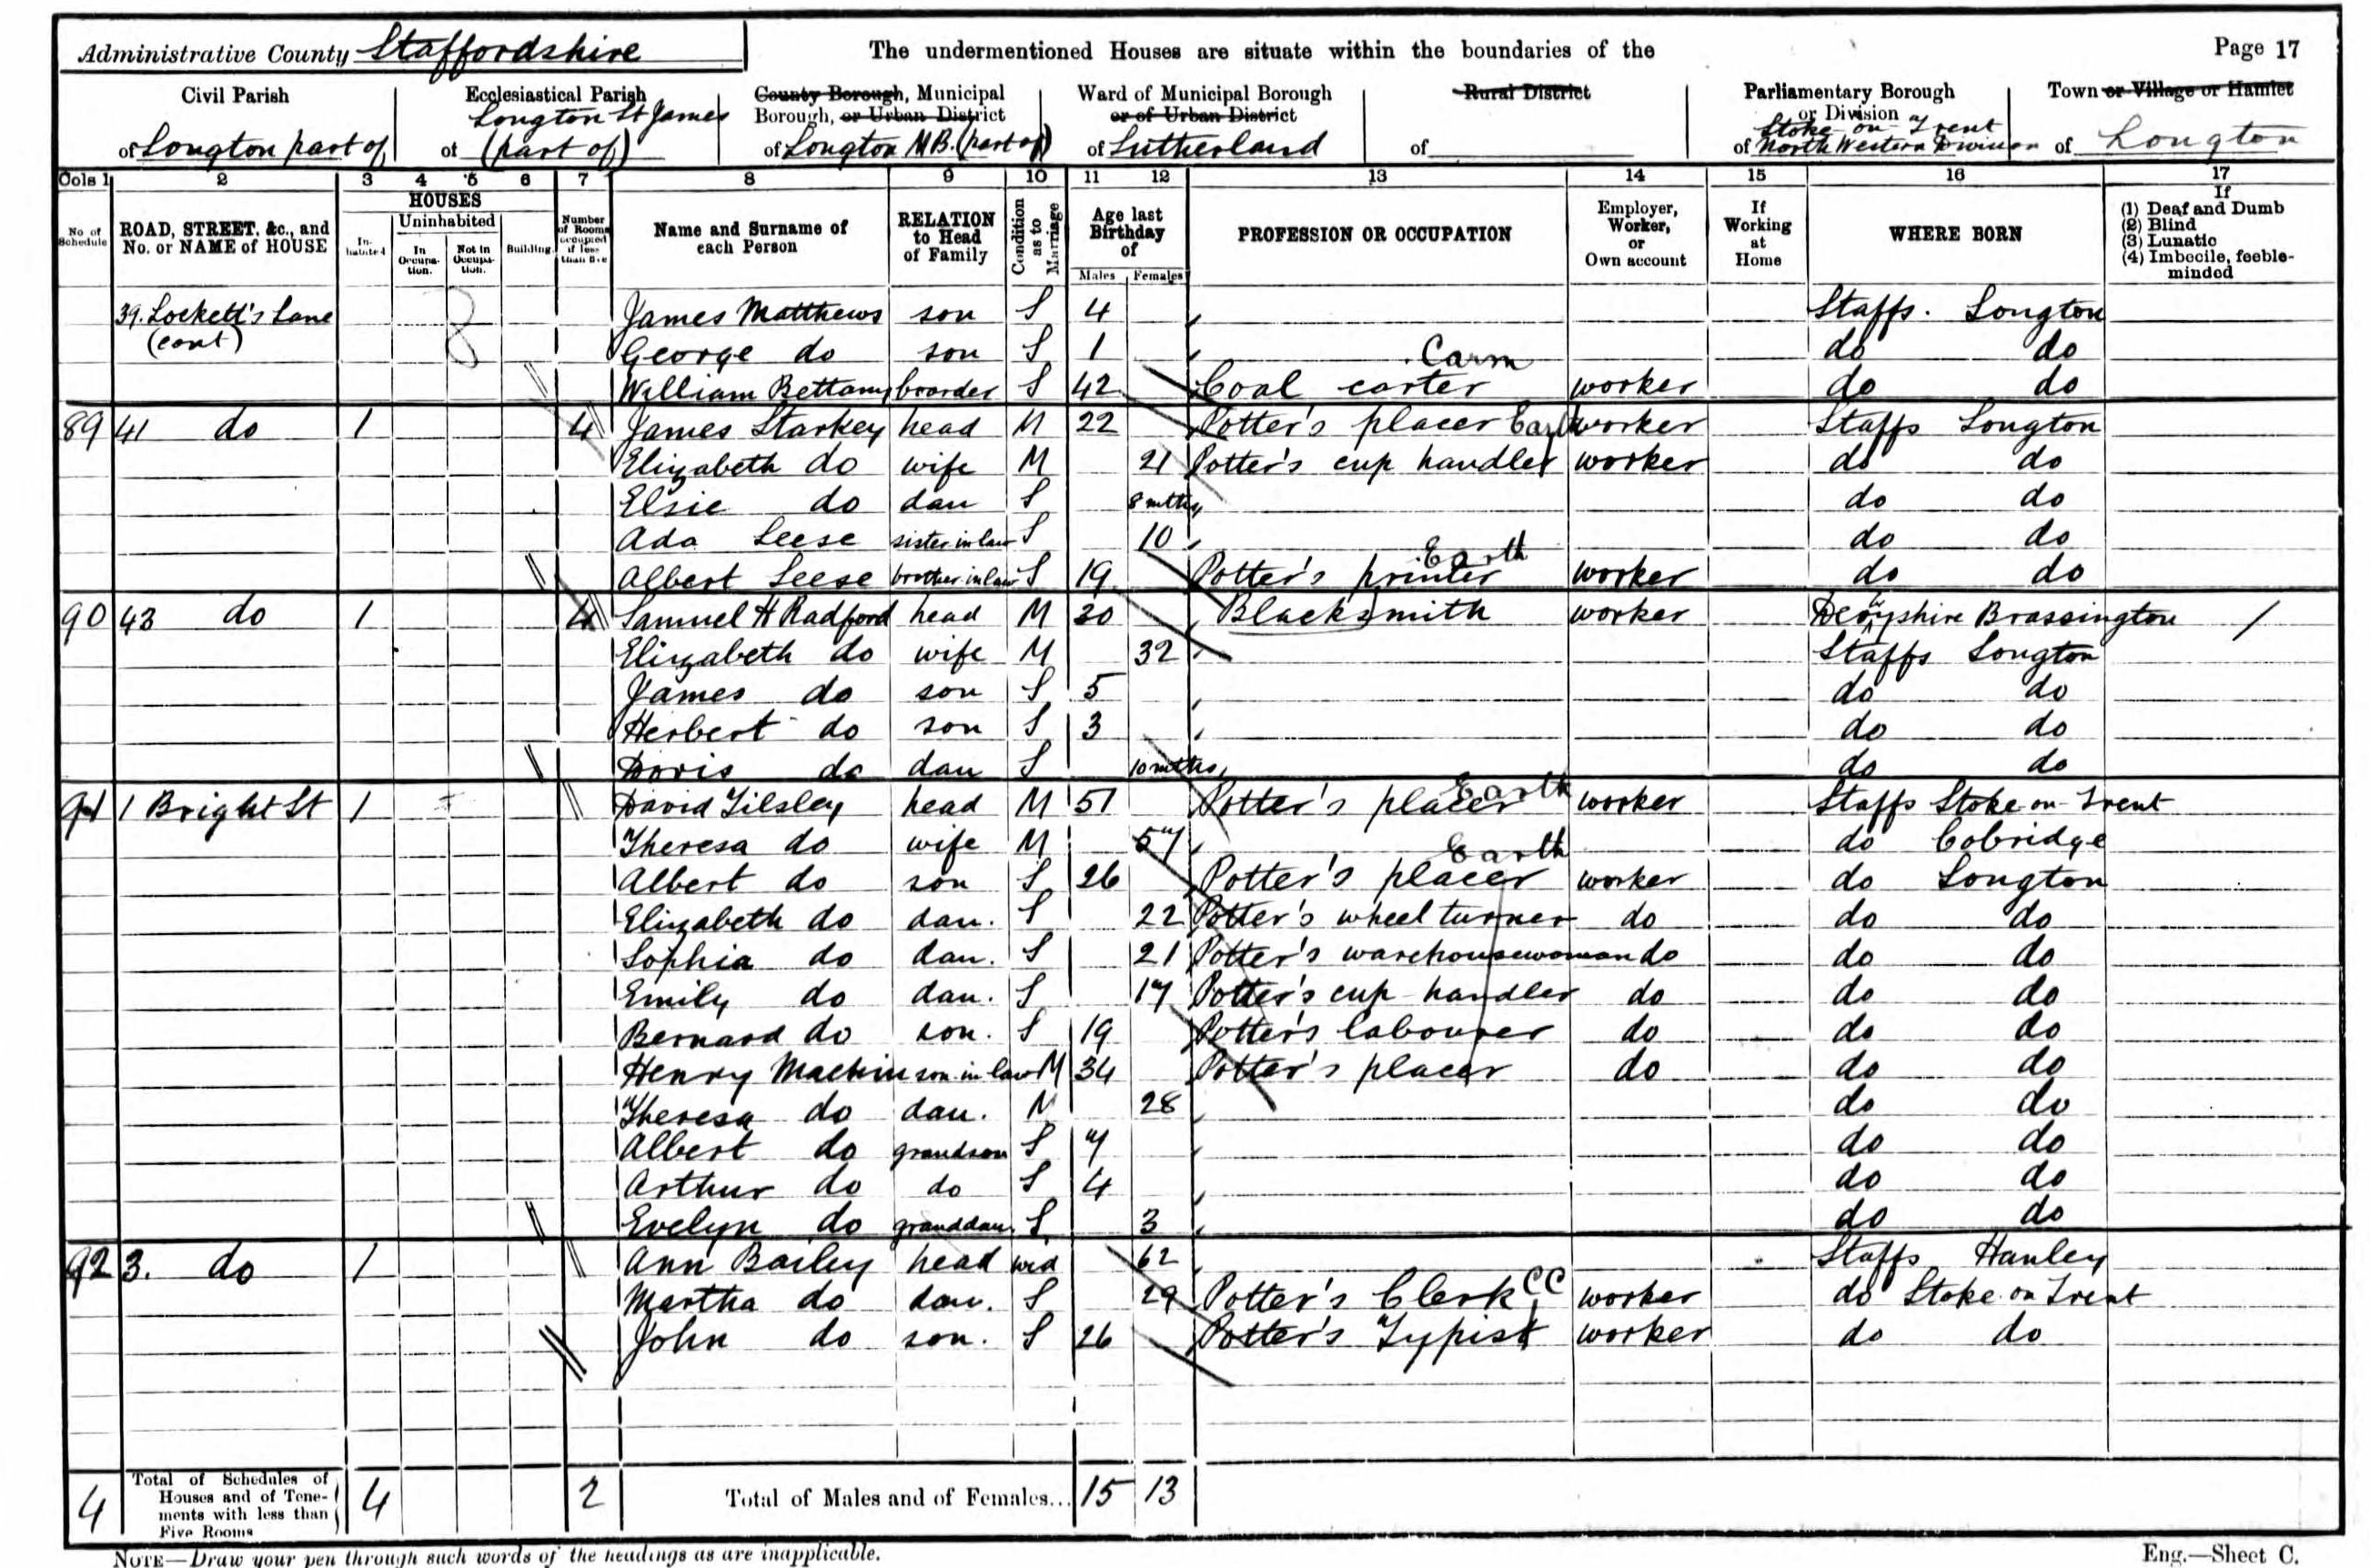 Administrative County Staffordshire
The undermentioned Houses are situate within the boundaries of the
Page 17
Civil Parish
of Longton part of
Ecclesiastical Parish
Longton St James
of (part of)
County Borough, Municipal
Borough, or Urban District
of Longton M.B. (part of)
Ward of Municipal Borough
or of Urban District
of Sutherland
Rural District
of
Parliamentary Borough
or Division
Stoke on Trent
of North Western Division
Town or Village or Hamlet
of Longton
Cols 1 2 3 4 5 6 7 8 9 10 11 12 13 14 15 16 17
No of Schedule
ROAD, STREET, &c., and No. or NAME of HOUSE
HOUSES
Inhabited
Uninhabited
In Occupation.
Not in Occupation.
Building
Number of Rooms occupied if less than five
Name and Surname of each Person
RELATION to Head of Family
Condition as to Marriage
Age last Birthday of
Males Females
PROFESSION OR OCCUPATION
Employer, Worker, or Own account
If Working at Home
WHERE BORN
If
(1) Deaf and Dumb
(2) Blind
(3) Lunatic
(4) Imbecile, feeble-minded
39. Lockett's Lane James Matthews son S 4 Staffs. Longton
(cont) George do son S 1 do do
Carm
William Bettany boarder S 42 Coal carter worker do do
89 41 do 1 4 James Starkey head M 22 Potter's placer Earth worker Staffs Longton
Elizabeth do wife M 21 Potter's cup handler worker do do
Elsie do dau S 8 mths do do
Ada Leese sister in law S 10 do do
Earth
Albert Leese brother in law S 19 Potter's printer worker do do
90 43 do 1 4 Samuel H Radford head M 30 Blacksmith worker Derbyshire Brassington /
Elizabeth do wife M 32 Staffs Longton
James do son S 5 do do
Herbert do son S 3 do do
Doris do dau S 10 mths do do
91 1 Bright St 1 David Tilsley head M 51 Potter's placer Earth worker Staffs Stoke on Trent
Theresa do wife M 57 do Cobridge
Earth
Albert do son S 26 Potter's placer worker do Longton
Elizabeth do dau. S 22 Potter's wheel turner do do do
Sophia do dau. S 21 Potter's warehousewoman do do do
Emily do dau. S 17 Potter's cup handler do do do
Bernard do son. S 19 Potter's labourer do do do
Henry Machin son in law M 34 Potter's placer do do do
Theresa do dau. M 28 do do
Albert do grandson S 7 do do
Arthur do do S 4 do do
Evelyn do granddau. S 3 do do
92 3. do 1 Ann Bailey head wid 62 Staffs Hanley
Martha do dau. S 29 Potter's Clerk CC worker do Stoke on Trent
John do son. S 26 Potter's Typist worker do do
4 Total of Schedules of Houses and of Tenements with less than Five Rooms 4 2 Total of Males and of Females... 15 13
NOTE—Draw your pen through such words of the headings as are inapplicable.
Eng.—Sheet C.